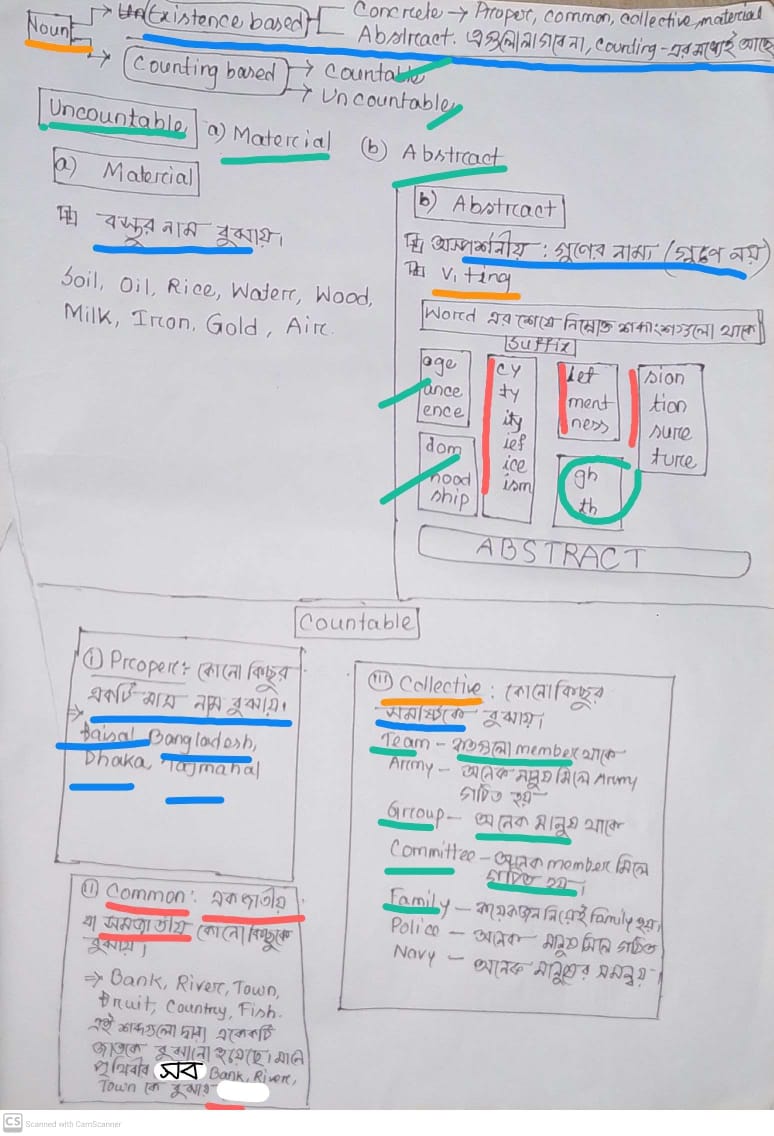 Noun
Existence based
Concrete → Proper, common, collective, material
Abstract. এগুলো লাগবে না, Counting-এর মধ্যেই আছে
Counting based → Countable
→ Uncountable
Uncountable a) Material (b) Abstract
a) Material
বস্তুর নাম বুঝায়।
Soil, Oil, Rice, Water, Wood,
Milk, Iron, Gold, Air.
b) Abstract
অস্পর্শনীয় : গুণের নাম, (গুণে নয়)
V, + ing
Word এর শেষে নিম্নোক্ত শব্দাংশগুলো থাকে
Suffix
age
ance
ence
dom
hood
ship
cy
ty
ity
ief
ice
ism
let
ment
ness
gh
th
sion
tion
sure
ture
ABSTRACT
Countable
(i) Proper: কোনো কিছুর
একটি মাত্র নাম বুঝায়।
⇒ Faisal, Bangladesh,
Dhaka, Tajmahal
(ii) Common: একজাতীয়
বা সমজাতীয় কোনো কিছুকে
বুঝায়।
⇒ Bank, River, Town,
Fruit, Country, Fish.
এই শব্দগুলো দ্বারা একেকটি
জাতকে বুঝানো হয়েছে। মানে
পৃথিবীর সব Bank, River,
Town কে বুঝায়
(iii) Collective: কোনো কিছুর
সমষ্টিকে বুঝায়।
Team – কতগুলো member থাকে
Army – অনেক মানুষ মিলে Army
গঠিত হয়
Group – অনেক মানুষ থাকে
Committee – অনেক member মিলে
গঠিত হয়।
Family – কয়েকজন নিয়েই Family হয়।
Police – অনেক মানুষ মিলে গঠিত
Navy – অনেক মানুষের সমন্বয়।
CS Scanned with CamScanner